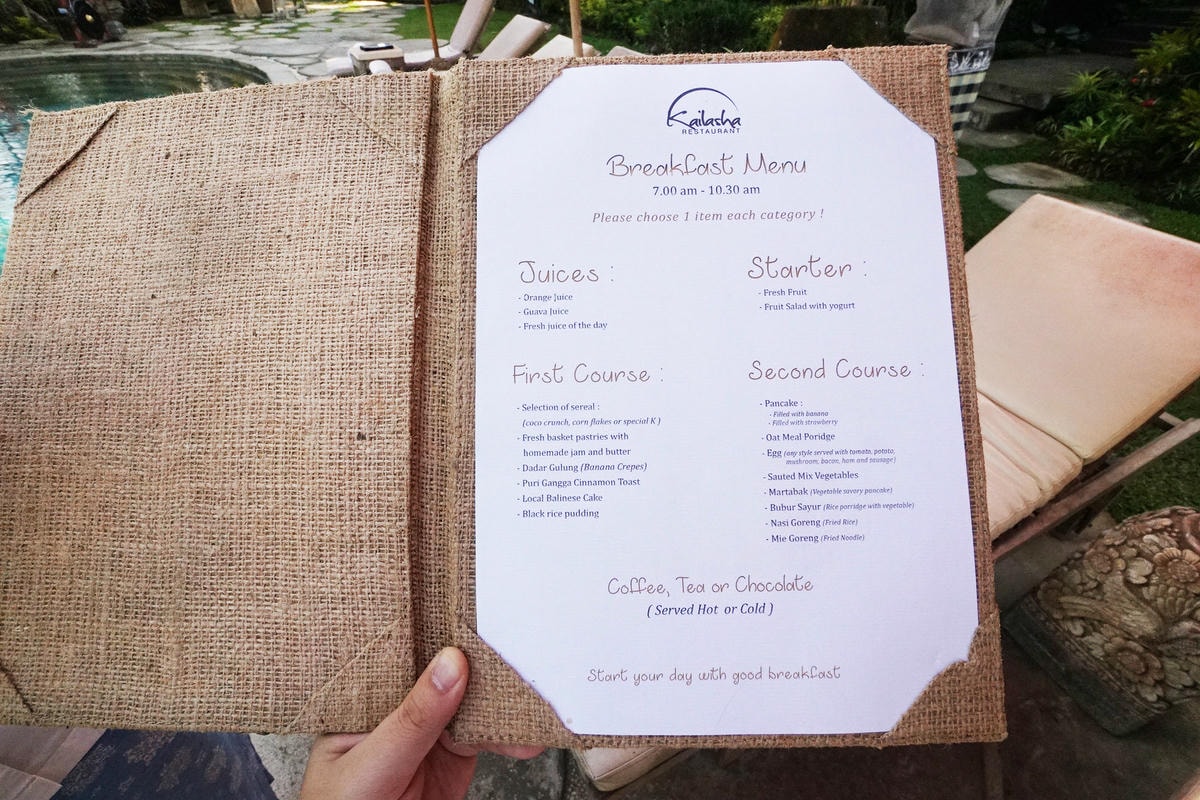 Kailasha
RESTAURANT
Breakfast Menu
7.00 am - 10.30 am
Please choose 1 item each category !
Juices :
- Orange Juice
- Guava Juice
- Fresh juice of the day
Starter :
- Fresh Fruit
- Fruit Salad with yogurt
First Course :
- Selection of sereal :
(coco crunch, corn flakes or special K )
- Fresh basket pastries with
homemade jam and butter
- Dadar Gulung (Banana Crepes)
- Puri Gangga Cinnamon Toast
- Local Balinese Cake
- Black rice pudding
Second Course :
- Pancake :
- Filled with banana
- Filled with strawberry
- Oat Meal Poridge
- Egg (any style served with tomato, potato,
mushroom, bacon, ham and sausage)
- Sauted Mix Vegetables
- Martabak (Vegetable savory pancake)
- Bubur Sayur (Rice porridge with vegetable)
- Nasi Goreng (Fried Rice)
- Mie Goreng (Fried Noodle)
Coffee, Tea or Chocolate
( Served Hot or Cold )
Start your day with good breakfast